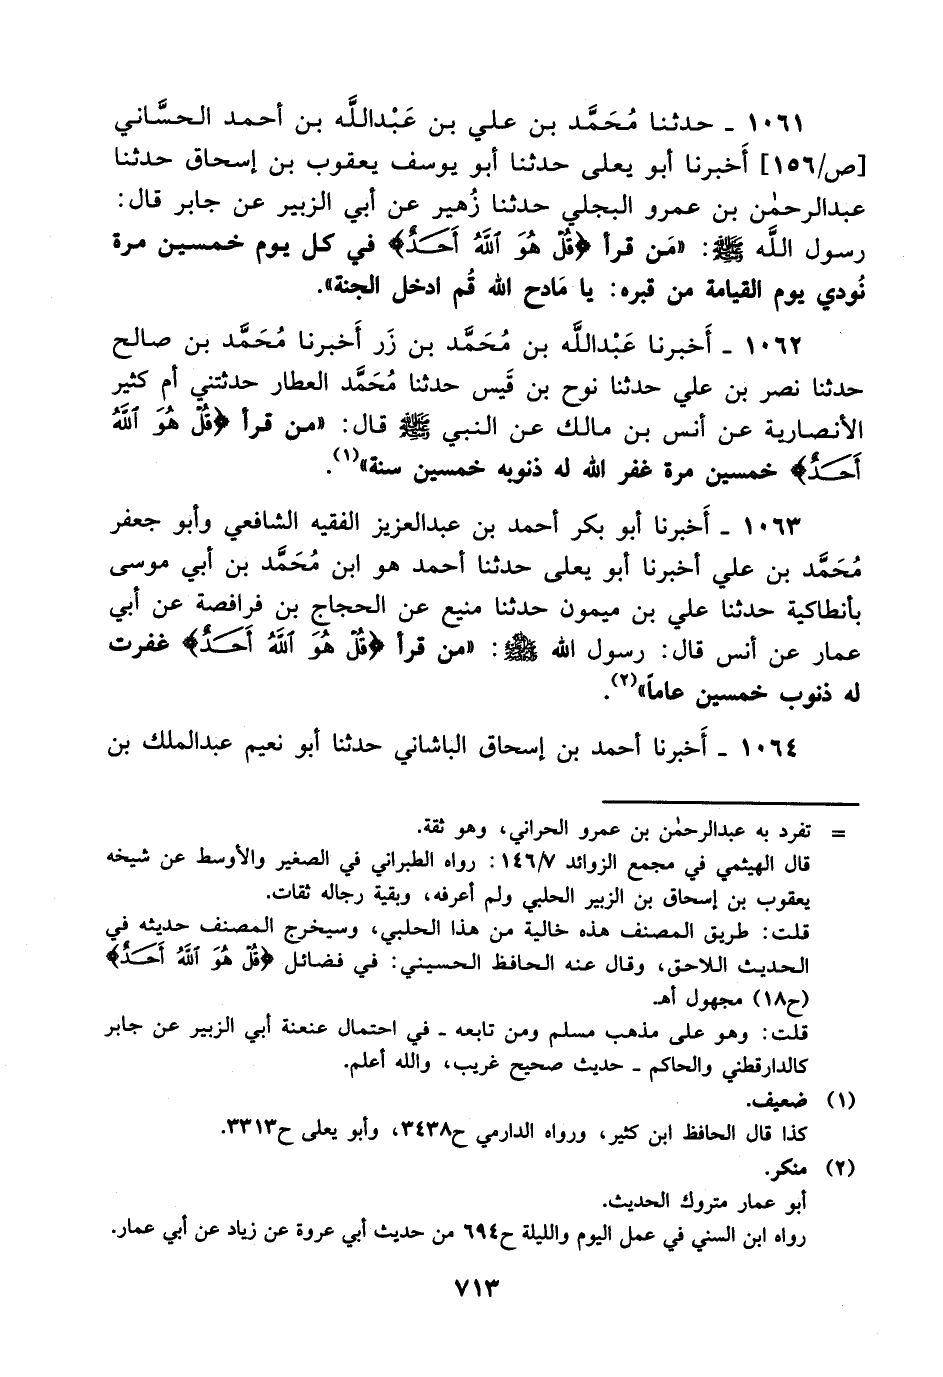 ١٠٦١ ـ حدثنا مُحَمَّد بن علي بن عَبْدالله بن أحمد الحسَّاني
[ص/١٥٦] أَخبرنا أبو يعلى حدثنا أبو يوسف يعقوب بن إسحاق حدثنا
عبدالرحمٰن بن عمرو البجلي حدثنا زُهير عن أبي الزبير عن جابر قال:
رسول الله ﷺ: «مَن قرأ ﴿قُلْ هُوَ ٱللَّهُ أَحَدٌ﴾ في كل يوم خمسين مرة
نُودي يوم القيامة من قبره: يا مَادح الله قُم ادخل الجنة».
١٠٦٢ ـ أَخبرنا عَبْدالله بن مُحَمَّد بن زَر أَخبرنا مُحَمَّد بن صالح
حدثنا نصر بن علي حدثنا نوح بن قَيس حدثنا مُحَمَّد العطار حدثتني أم كثير
الأنصارية عن أنس بن مالك عن النبي ﷺ قال: «من قرأ ﴿قُلْ هُوَ ٱللَّهُ
أَحَدٌ﴾ خمسين مرة غفر الله له ذنوبه خمسين سنة»(١).
١٠٦٣ ـ أَخبرنا أبو بكر أحمد بن عبدالعزيز الفقيه الشافعي وأبو جعفر
مُحَمَّد بن علي أخبرنا أبو يعلى حدثنا أحمد هو ابن مُحَمَّد بن أبي موسى
بأنطاكية حدثنا علي بن ميمون حدثنا منيع عن الحجاج بن فرافصة عن أبي
عمار عن أنس قال: رسول الله ﷺ: «من قرأ ﴿قُلْ هُوَ ٱللَّهُ أَحَدٌ﴾ غفرت
له ذنوب خمسين عاماً»(٢).
١٠٦٤ ـ أَخبرنا أحمد بن إسحاق الباشاني حدثنا أبو نعيم عبدالملك بن
= تفرد به عبدالرحمٰن بن عمرو الحراني، وهو ثقة.
قال الهيثمي في مجمع الزوائد ١٤٦/٧: رواه الطبراني في الصغير والأوسط عن شيخه
يعقوب بن إسحاق بن الزبير الحلبي ولم أعرفه، وبقية رجاله ثقات.
قلت: طريق المصنف هذه خالية من هذا الحلبي، وسيخرج المصنف حديثه في
الحديث اللاحق، وقال عنه الحافظ الحسيني: في فضائل ﴿قُلْ هُوَ ٱللَّهُ أَحَدٌ﴾
(ح١٨) مجهول أهـ.
قلت: وهو على مذهب مسلم ومن تابعه ـ في احتمال عنعنة أبي الزبير عن جابر
كالدارقطني والحاكم ـ حديث صحيح غريب، والله أعلم.
(١) ضعيف.
كذا قال الحافظ ابن كثير، ورواه الدارمي ح٣٤٣٨، وأبو يعلى ح٣٣١٣.
(٢) منكر.
أبو عمار متروك الحديث.
رواه ابن السني في عمل اليوم والليلة ح٦٩٤ من حديث أبي عروة عن زياد عن أبي عمار.
٧١٣